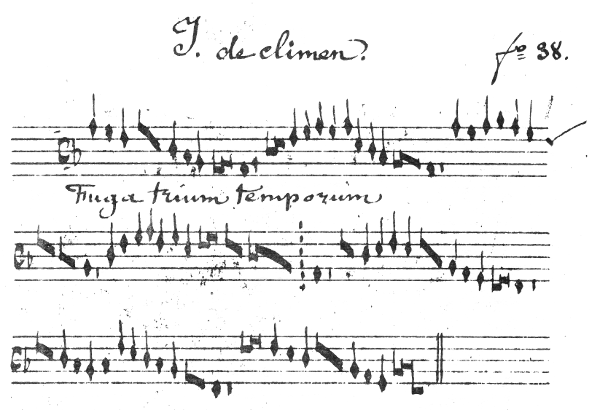 J. de climen? fº 38.
Fuga trium temporum